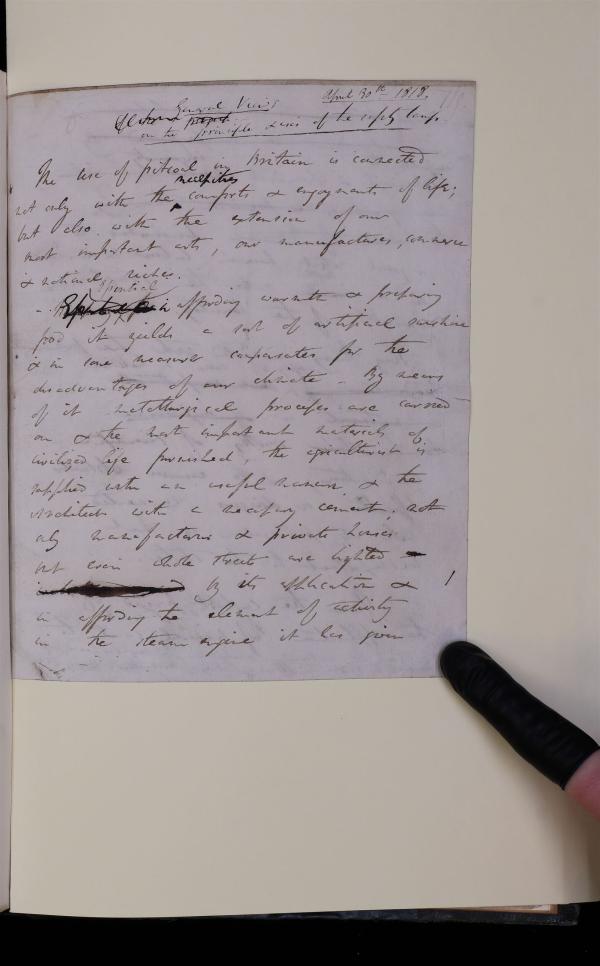 April 30th 1818.
General Views
on the principle & uses of the safety lamp.
The use of pitcoal in Britain is connected
necessities
not only with the comforts & enjoyments of life;
but also with the extension of our
most important arts, our manufactures, commerce
& national riches.
Essential
- in affording warmth & preparing
food it yields a sort of artificial sunshine
& in some measure compensates for the
disadvantages of our climate - By means
of it metallurgical processes are carried
on & the most important materials of
civilized life furnished, the agriculturist is
supplied with an useful manure & the
Architect with a necessary cement. not
only manufactories & private houses
but even whole streets are lighted
By its application &
in affording the element of activity
in the steam engine it has given